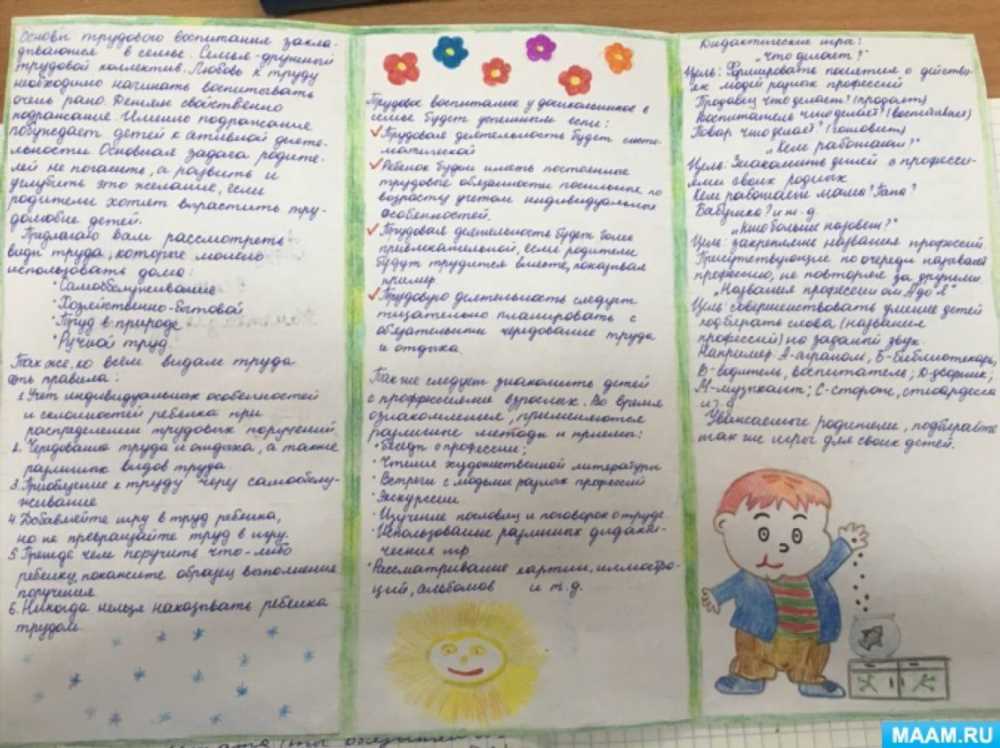 Основы трудового воспитания закла-
дываются в семье. Семья-дружный
трудовой коллектив. Любовь к труду
необходимо начинать воспитывать
очень рано. Детям свойственно
подражание. Именно подражание
побуждает детей к активной деяте-
льности. Основная задача родите-
лей не погасить, а развить и
углубить это желание, если
родители хотят вырастить тру-
долюбие детей.
Предлагаю вам рассмотреть
виды труда, которые можно
использовать дома:
• Самообслуживание
• Хозяйственно-бытовой
• Труд в природе
• Ручной труд.
Так же, ко всем видам труда
есть правила:
1. Учет индивидуальных особенностей
и склонностей ребенка при
распределении трудовых поручений.
2. Чередование труда и отдыха, а также
различных видов труда
3. Приобщение к труду через самообслу-
живание
4. Добавляйте игру в труд ребенка,
но не превращайте труд в игру.
5. Прежде чем поручить что-либо
ребенку, покажите образец выполнения
поручения
6. Никогда нельзя наказывать ребенка
трудом.
Трудовое воспитание у дошкольников в
семье будет успешным если:
✓ Трудовая деятельность будет систе-
матической
✓ Ребенок будет иметь постоянные
трудовые обязанности посильные по
возрасту учетом индивидуальных
особенностей.
✓ Трудовая деятельность будет более
привлекательной, если родители
будут трудится вместе, показывая
пример
✓ Трудовую деятельность следует
тщательно планировать с
обязательным чередование труда
и отдыха
Так же следует знакомить детей
с профессиями взрослых. Во время
ознакомления, применяются
различные методы и приемы:
• Беседы о профессии;
• Чтение художественной литературы
• Встречи с людьми разных профессий
• Экскурсии
• Изучение пословиц и поговорок о труде
• Использование различных дидакти-
ческих игр
• Рассматривание картин, иллюстра-
ций, альбомов и т.д.
Дидактические игры:
„Что делает?"
Цель: Формировать понятия о действи-
ях людей разных профессий
Продавец что делает? (продает)
Воспитатель что делает? (воспитывает)
Повар что делает? (готовит)
„Кем работают?"
Цель: Знакомить детей с професси-
ями своих родных
Кем работают мама? Папа?
Бабушка? и т.д
„Кто больше назовет?"
Цель: закрепление названия профессий.
Присутствующие по очереди называют
профессию, не повторяя за другими
„Названия профессии от А до Я"
Цель: совершенствовать умение детей
подбирать слова (названия
профессий) на заданный звук.
Например А-агроном, Б-библиотекарь,
В-водитель, воспитатель; Д-дворник;
М-музыкант; С-сторож, стюардесса
и т.д
Уважаемые родители, подбирайте
так же игры для своих детей.
MAAM.RU